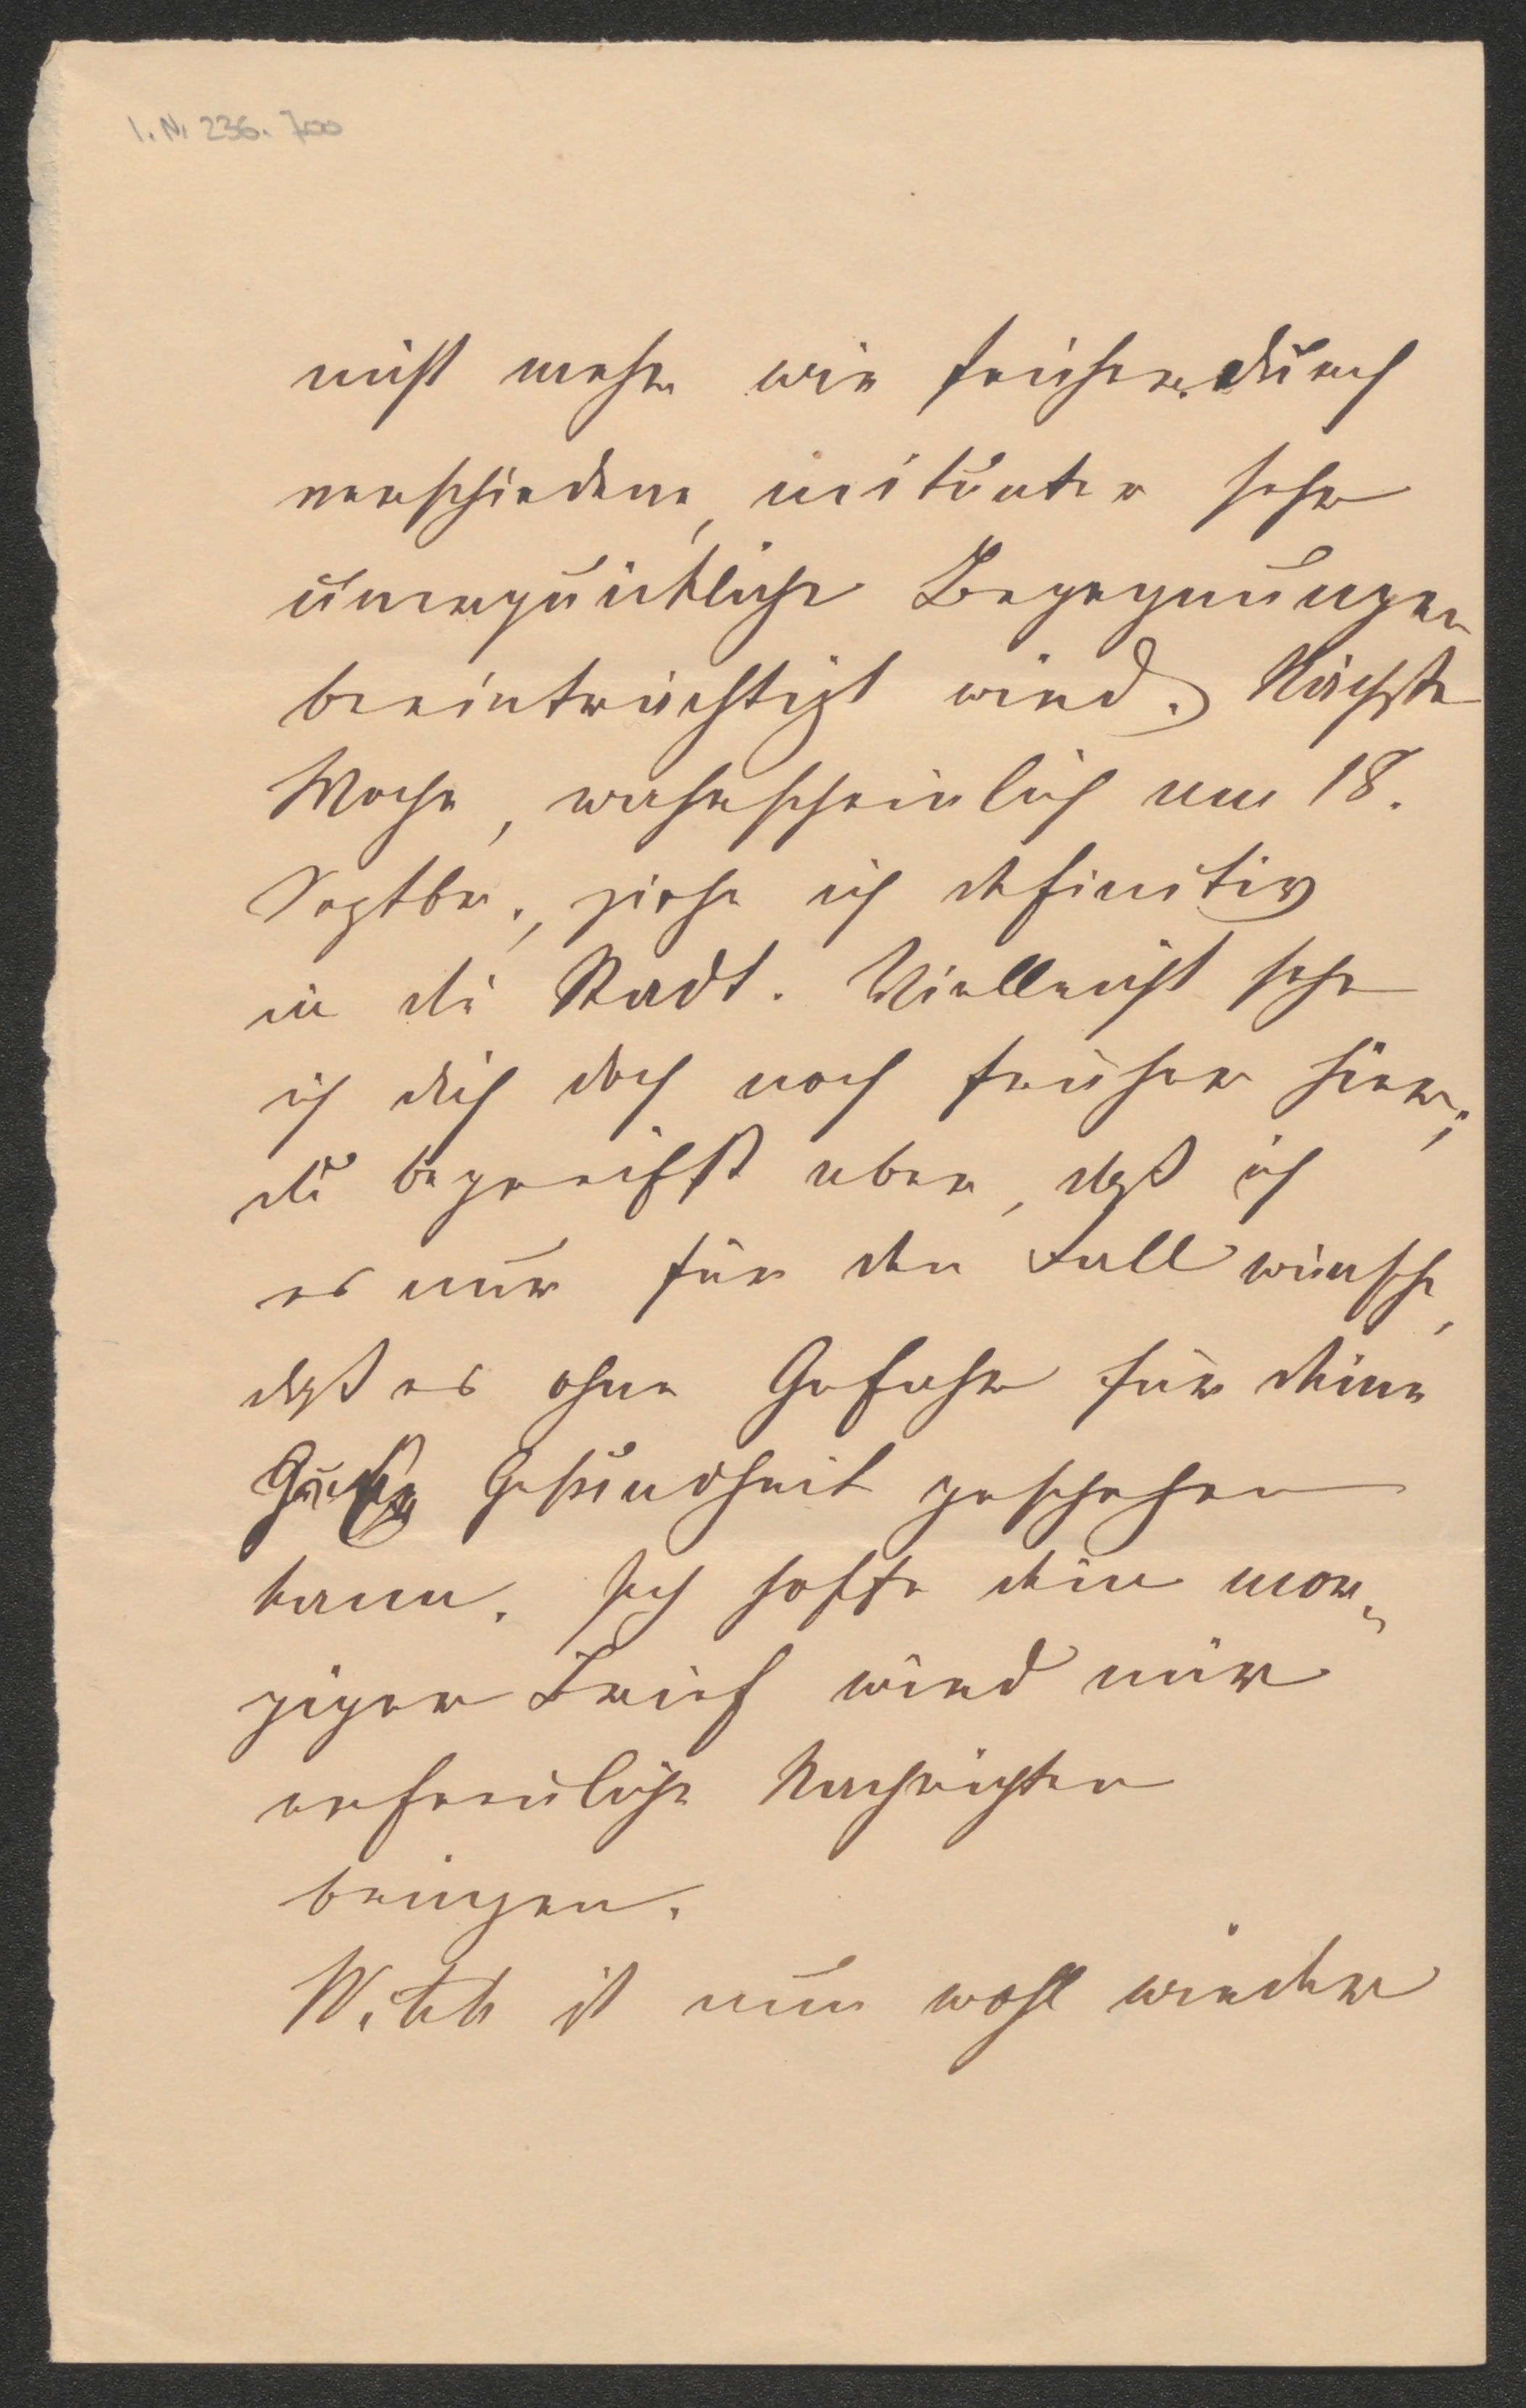 I. N. 236.700
nicht mehr wie früher durch
verschiedene, mitunter sehr
unerquickliche Begegnungen
beeinträchtigt wird. Nächste
Woche, wahrscheinlich am 18.
Septbr., ziehe ich definitiv
in die Stadt. Vielleicht sehe
ich dich doch noch früher hier;
du begreifst aber, daß ich
es nur für den Fall wünsche,
daß es ohne Gefahr für deine
Gesundheit geschehen
kann. Ich hoffe dein mor-
giger Brief wird mir
erfreuliche Nachrichten
bringen.
ist nun wohl wieder